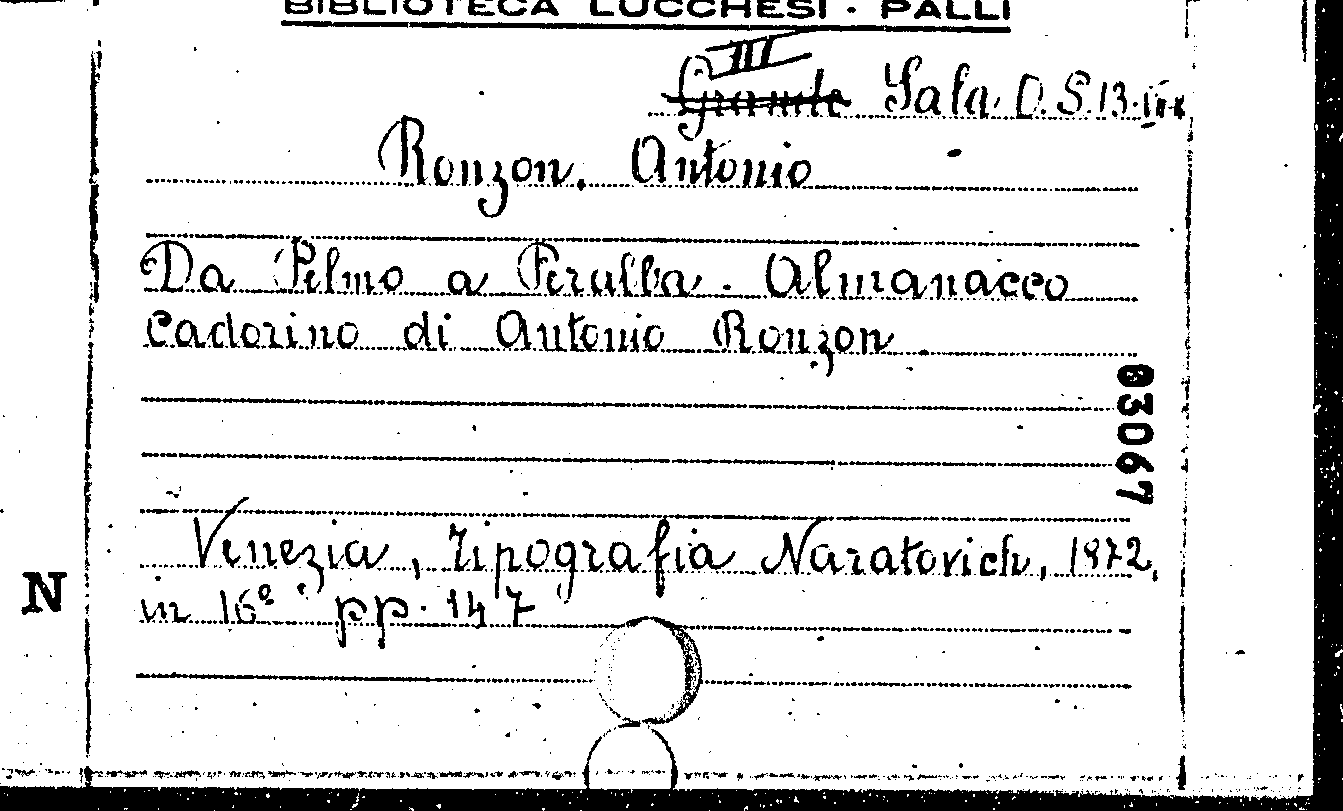 BIBLIOTECA LUCCHESI - PALLI
III
Grande Sala O.S.13.
Ronzon, Antonio
Da Pelmo a Peralba. Almanacco
Cadorino di Antonio Ronzon.
03067
Venezia, tipografia Naratovich, 1872,
N
in 16º pp. 147